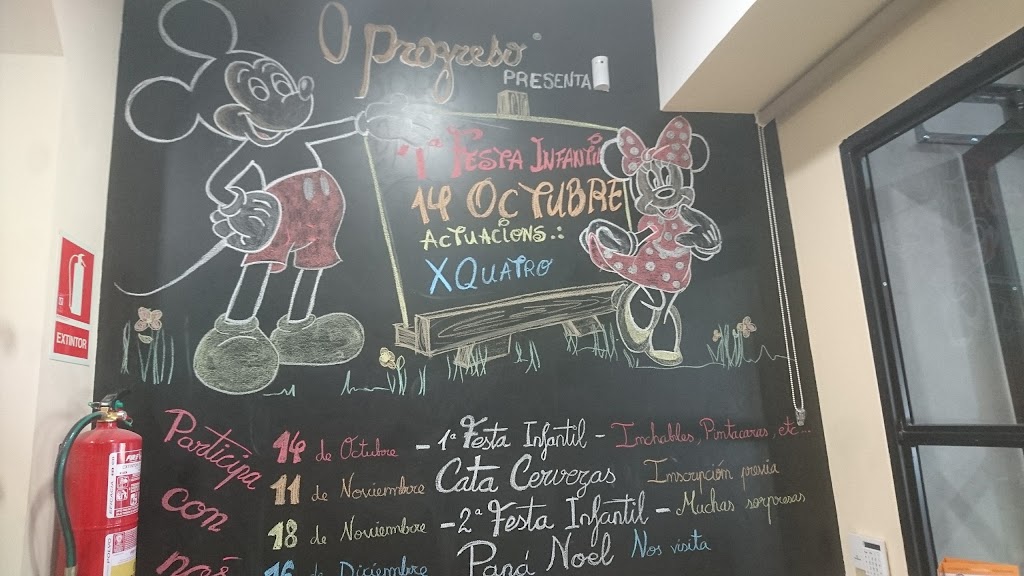 O Progreso
PRESENTA
1ª FESTA INFANTIL
14 OCTUBRE
ACTUACIONS.:
XQUATRO
EXTINTOR
Participa
con
nós
14 de Octubre - 1ª Festa Infantil - Inchables, Pintacaras, etc...
11 de Noviembre Cata Cervezas Inscripción previa
18 de Noviembre - 2ª Festa Infantil - Muchas sorpresas
16 de Diciembre Papá Noel Nos visita